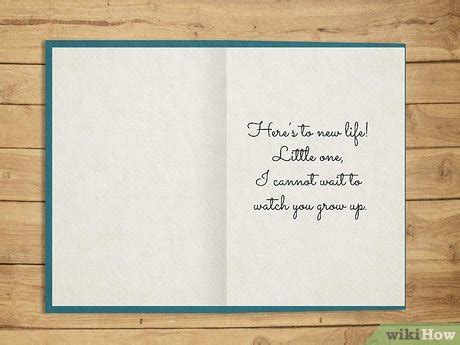 Here's to new life!
Little one,
I cannot wait to
watch you grow up.
wikiHow